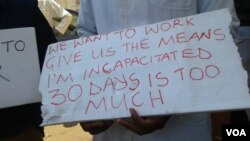 WE WANT TO WORK
GIVE US THE MEANS
I'M INCAPACITATED
30 DAYS IS TOO
MUCH
TO
VOA